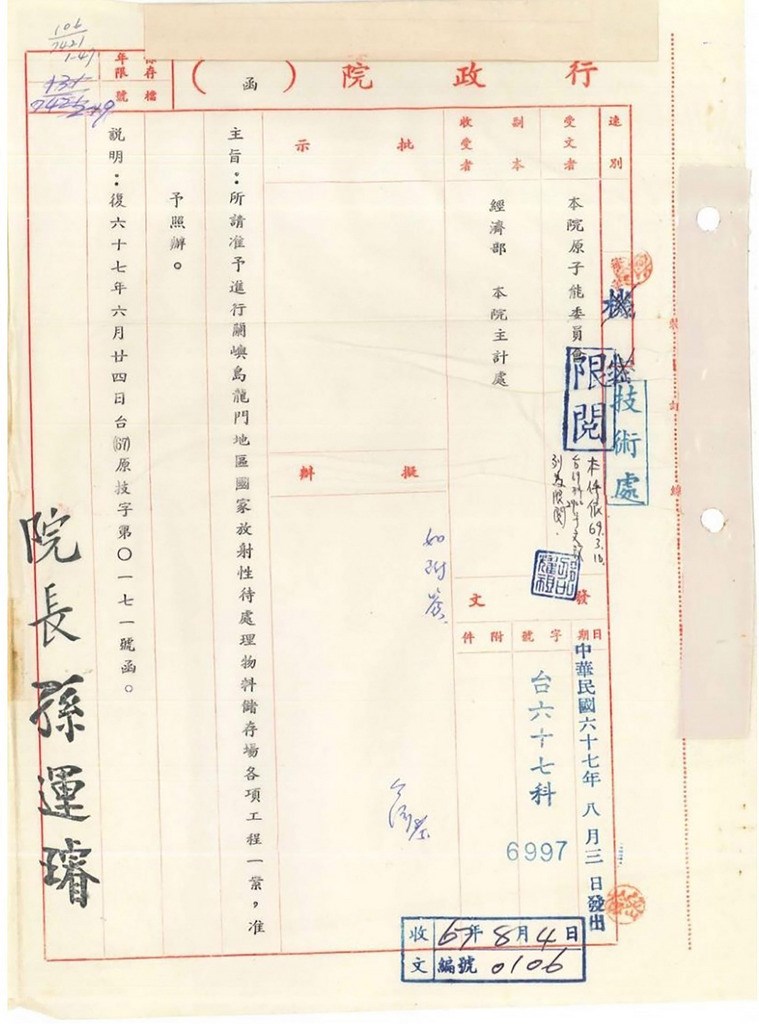 行政院(函)
保存年限
檔號
106
7421
1-47
速別
受文者
本院原子能委員會
副本收受者
經濟部 本院主計處
機密
限閱
技術處
本件依69.3.10.
列為限閱.
發文
日期
中華民國六十七年八月三日發出
字號
台六十七科
6997
附件
批示
擬辦
如附簽
主旨：所請准予進行蘭嶼島龍門地區國家放射性待處理物料儲存場各項工程一案，准
予照辦。
說明：復六十七年六月廿四日台(67)原技字第〇一七一號函。
院長孫運璿
收文
67年8月4日
編號 0106